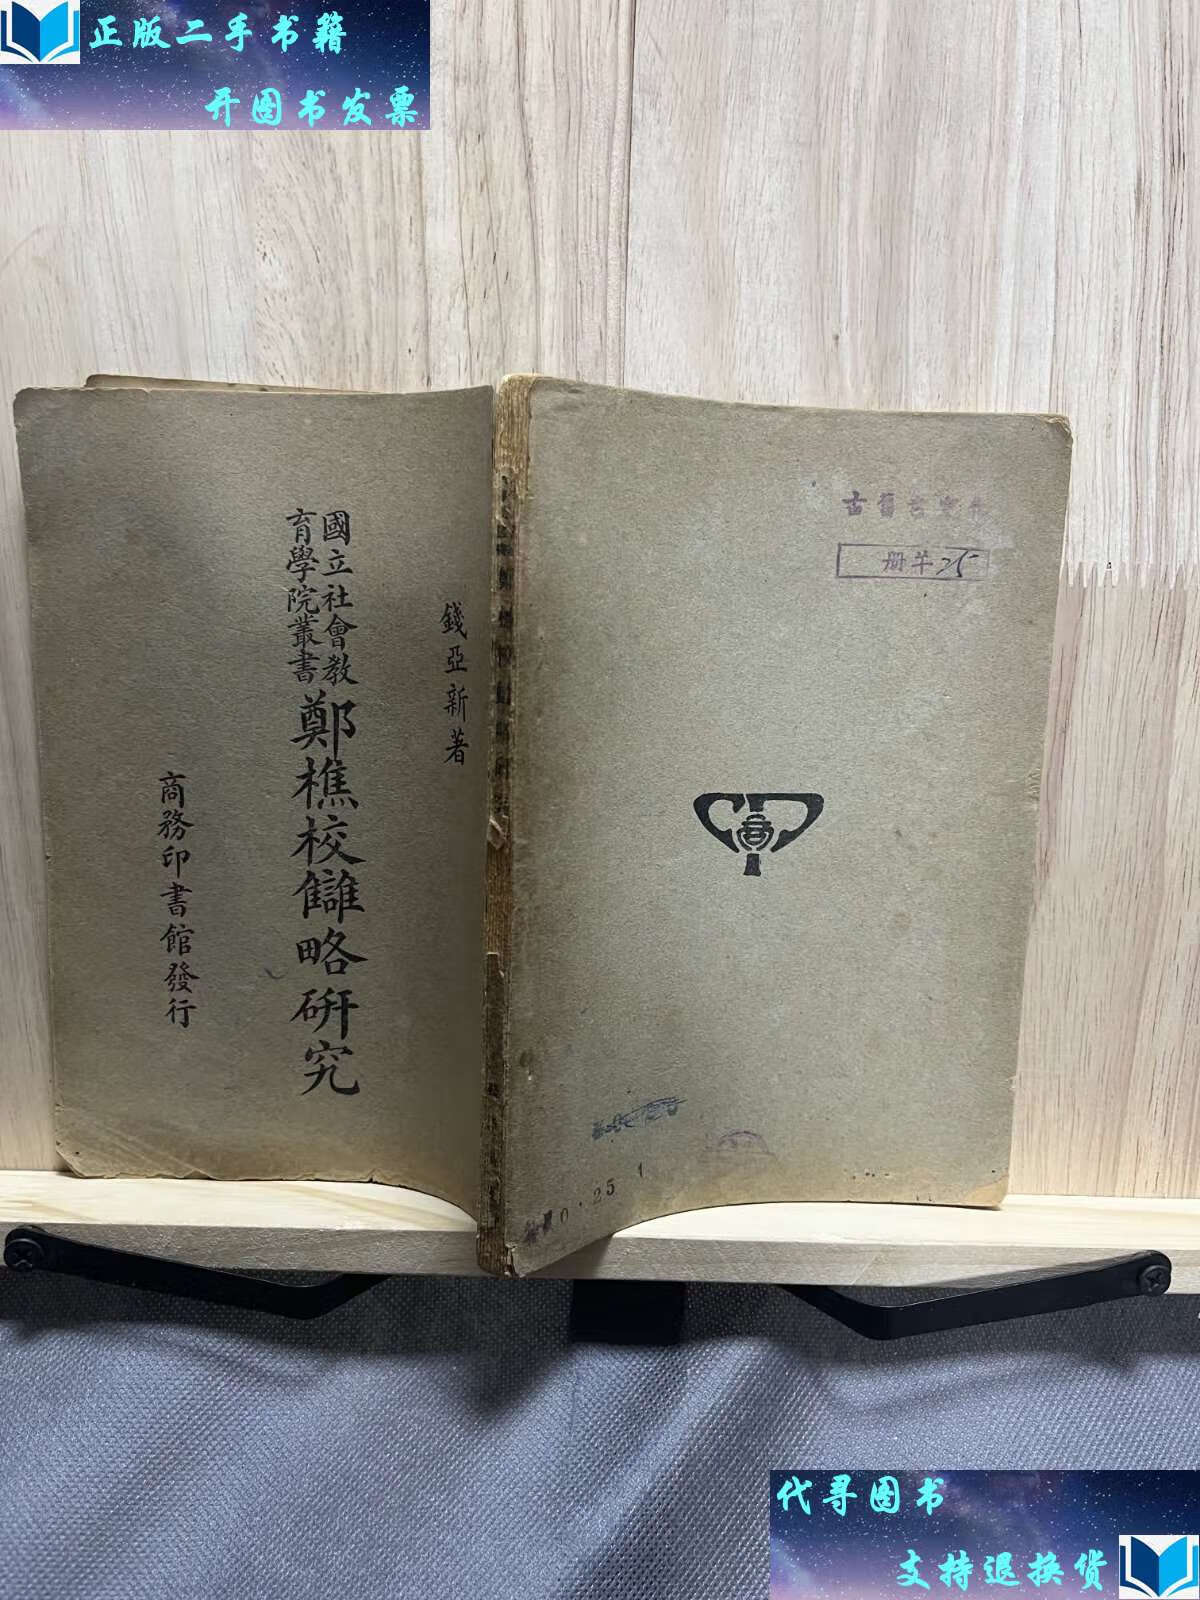 正版二手书籍
开图书发票
錢亞新著
國立社會教
育學院叢書
鄭樵校讎略研究
商務印書館發行
册 25
0.25 1
商
代寻图书
支持退换货